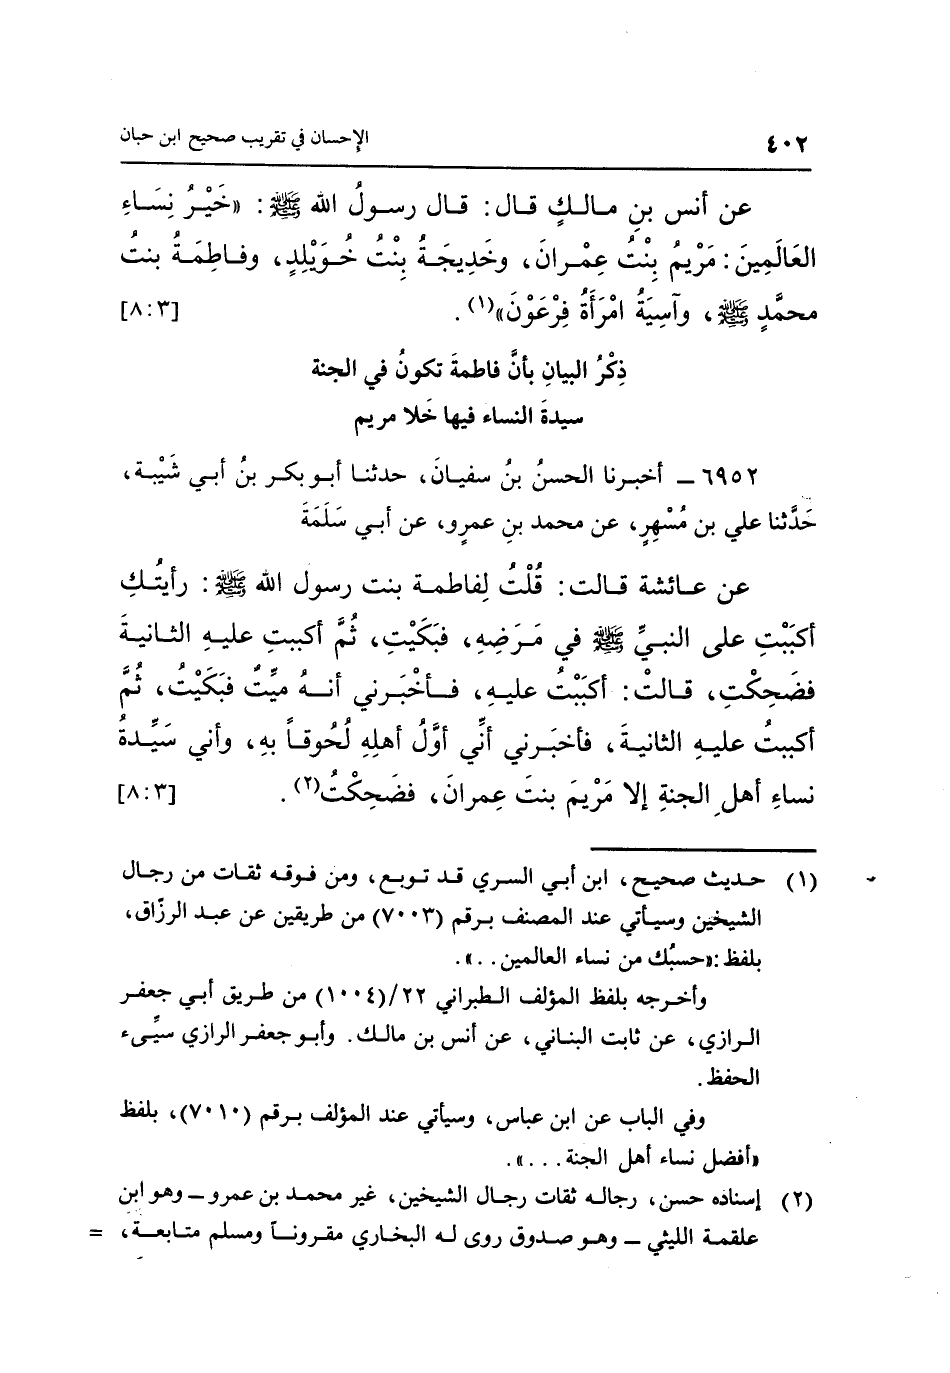 ٤٠٢ الإحسان في تقريب صحيح ابن حبان
عن أنس بنِ مالكٍ قال: قال رسولُ الله ﷺ: «خَيْرُ نِسَاءِ
العَالَمِينَ: مَرْيمُ بِنْتُ عِمْرانَ، وخَدِيجَةُ بِنْتُ خُوَيْلِدٍ، وفاطِمَةُ بنتُ
محمَّدٍ ﷺ، وآسِيَةُ امْرَأَةُ فِرْعَوْنَ»(١). [٨:٣]
ذِكْرُ البيانِ بأنَّ فاطمةَ تكونُ في الجنة
سيدةَ النساء فيها خَلا مريم
٦٩٥٢ ـ أخبرنا الحسنُ بنُ سفيانَ، حدثنا أبو بكر بنُ أبي شَيْبة،
حَدَّثنا علي بن مُسْهِرٍ، عن محمد بنِ عمرو، عن أبي سَلَمَةَ
عن عائشة قالت: قُلْتُ لِفاطمة بنت رسول الله ﷺ: رأيتُكِ
أكبَبْتِ على النبيِّ ﷺ في مَرَضِهِ، فبَكَيْتِ، ثُمَّ أكببتِ عليهِ الثانيةَ
فضَحِكْتِ، قالتْ: أكبَبْتُ عليهِ، فأخْبَرني أنهُ ميِّتٌ فبَكَيْتُ، ثُمَّ
أكببتُ عليهِ الثانيةَ، فأخبَرني أنِّي أوَّلُ أهلِهِ لُحُوقاً بهِ، وأني سَيِّدةُ
نساءِ أهلِ الجنةِ إلا مَرْيمَ بنتَ عِمرانَ، فضَحِكْتُ(٢). [٨:٣]
(١) حديث صحيح، ابن أبي السري قد توبع، ومن فوقه ثقات من رجال
الشيخين وسيأتي عند المصنف برقم (٧٠٠٣) من طريقين عن عبد الرزّاق،
بلفظ: «حسبُك من نساء العالمين...».
وأخرجه بلفظ المؤلف الطبراني ٢٢/(١٠٠٤) من طريق أبي جعفر
الرازي، عن ثابت البناني، عن أنس بن مالك. وأبو جعفر الرازي سيِّىء
الحفظ.
وفي الباب عن ابن عباس، وسيأتي عند المؤلف برقم (٧٠١٠)، بلفظ
«أفضل نساء أهل الجنة...».
(٢) إسناده حسن، رجاله ثقات رجال الشيخين، غير محمد بن عمرو ـ وهو ابن
علقمة الليثي ـ وهو صدوق روى له البخاري مقروناً ومسلم متابعة، =